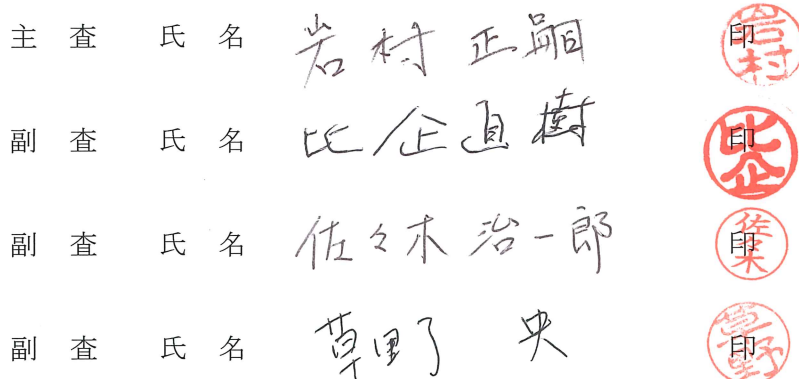 主 査 氏 名 岩村 正嗣 印 岩村
副 査 氏 名 比企 直樹 印 比企
副 査 氏 名 佐々木 治一郎 印 佐々木
副 査 氏 名 草野 央 印 草野